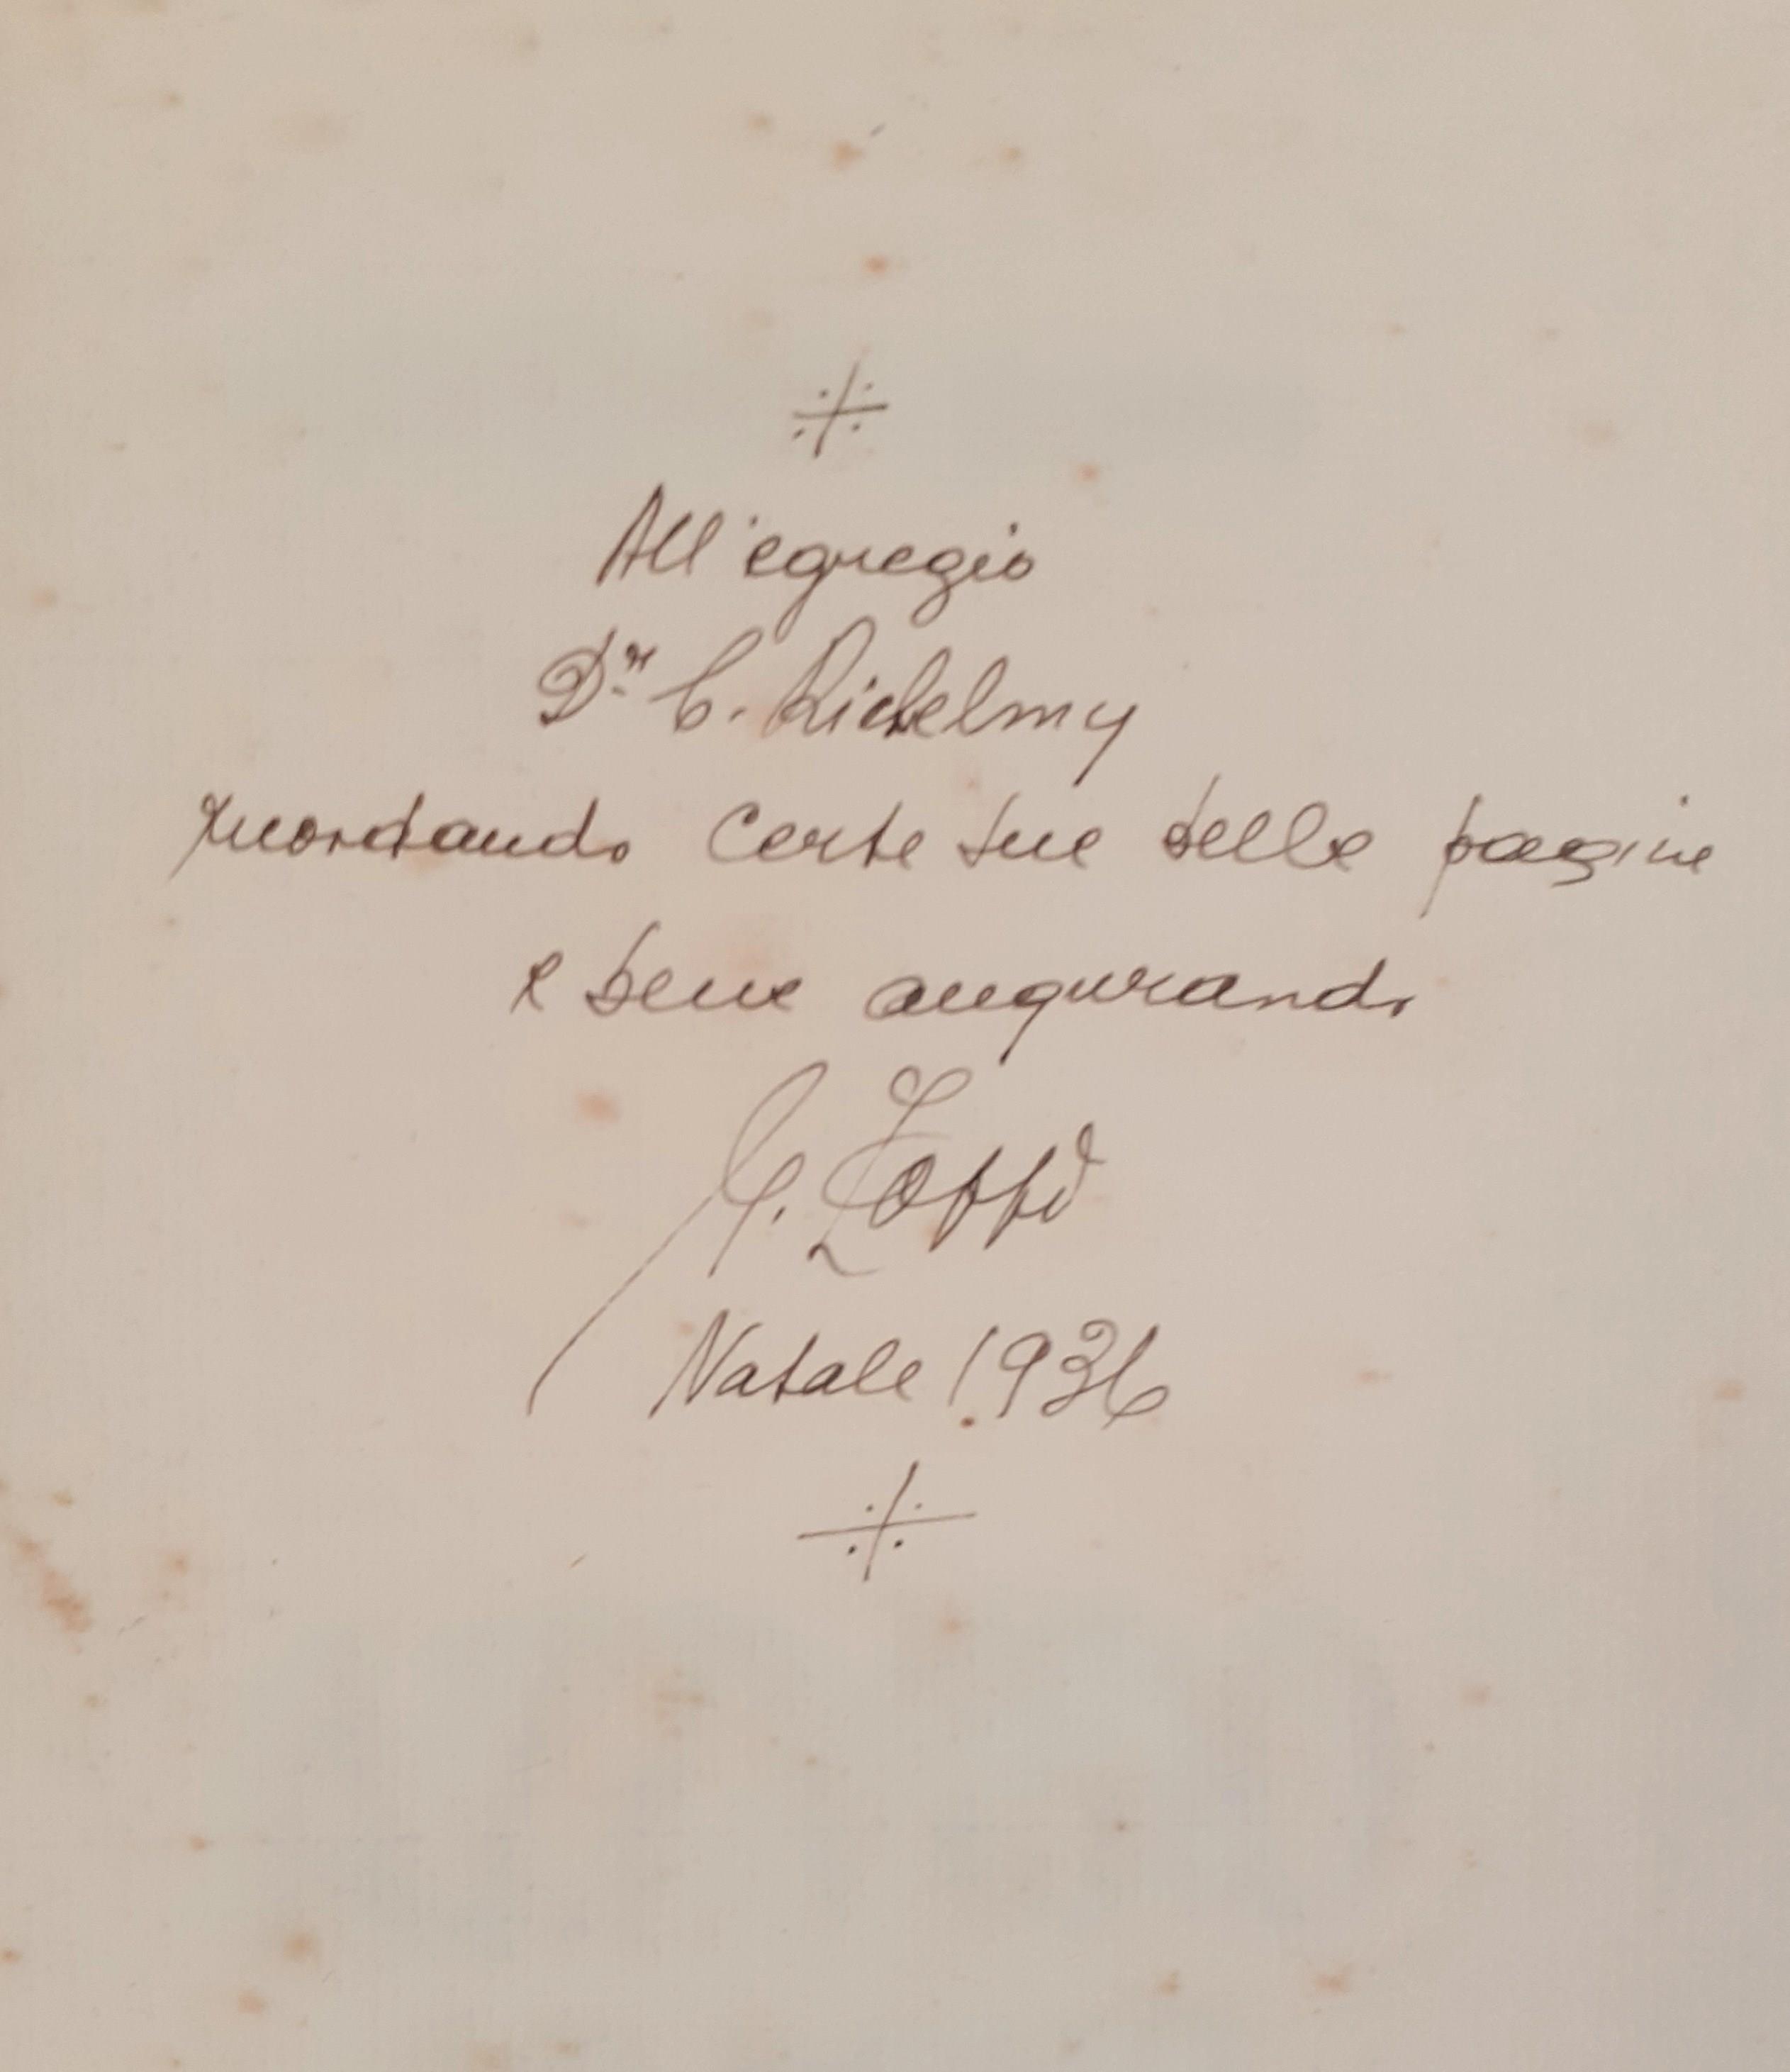 All'egregio
Dr. C. Richelmy
ricordando certe sue belle pagine
e bene augurando
G. Zoppi
Natale 1936